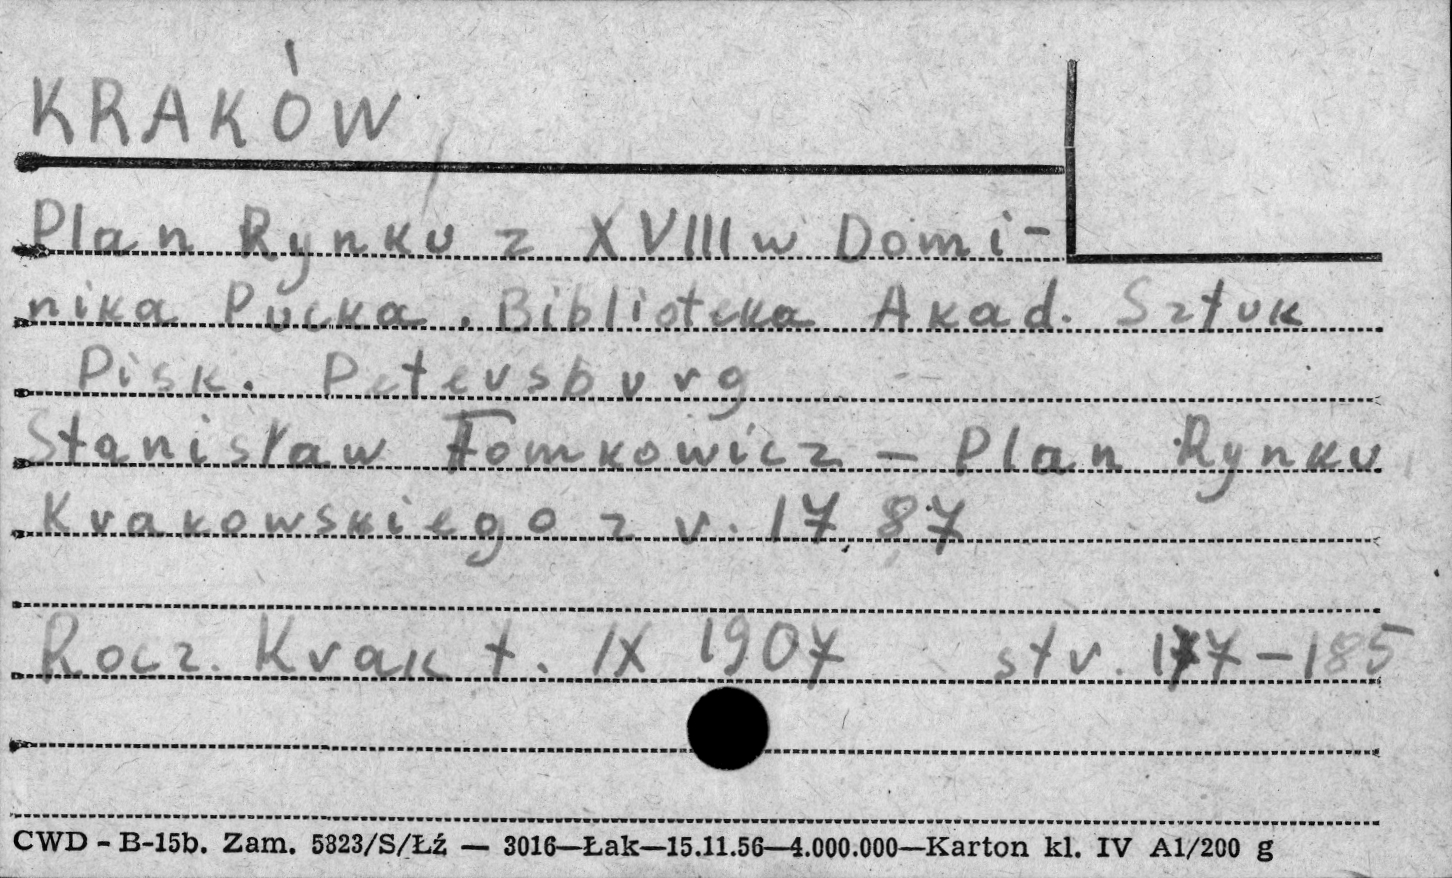 KRAKÓW
Plan Rynku z XVIII w Domi-
nika Pucka. Biblioteka Akad. Sztuk
Pisk. Petersburg
Stanisław Tomkowicz — Plan Rynku
Krakowskiego z r. 1787
Rocz. Krak t. IX 1907 str. 177-185
CWD - B-15b. Zam. 5823/S/Łź — 3016—Łak—15.11.56—4.000.000—Karton kl. IV A1/200 g